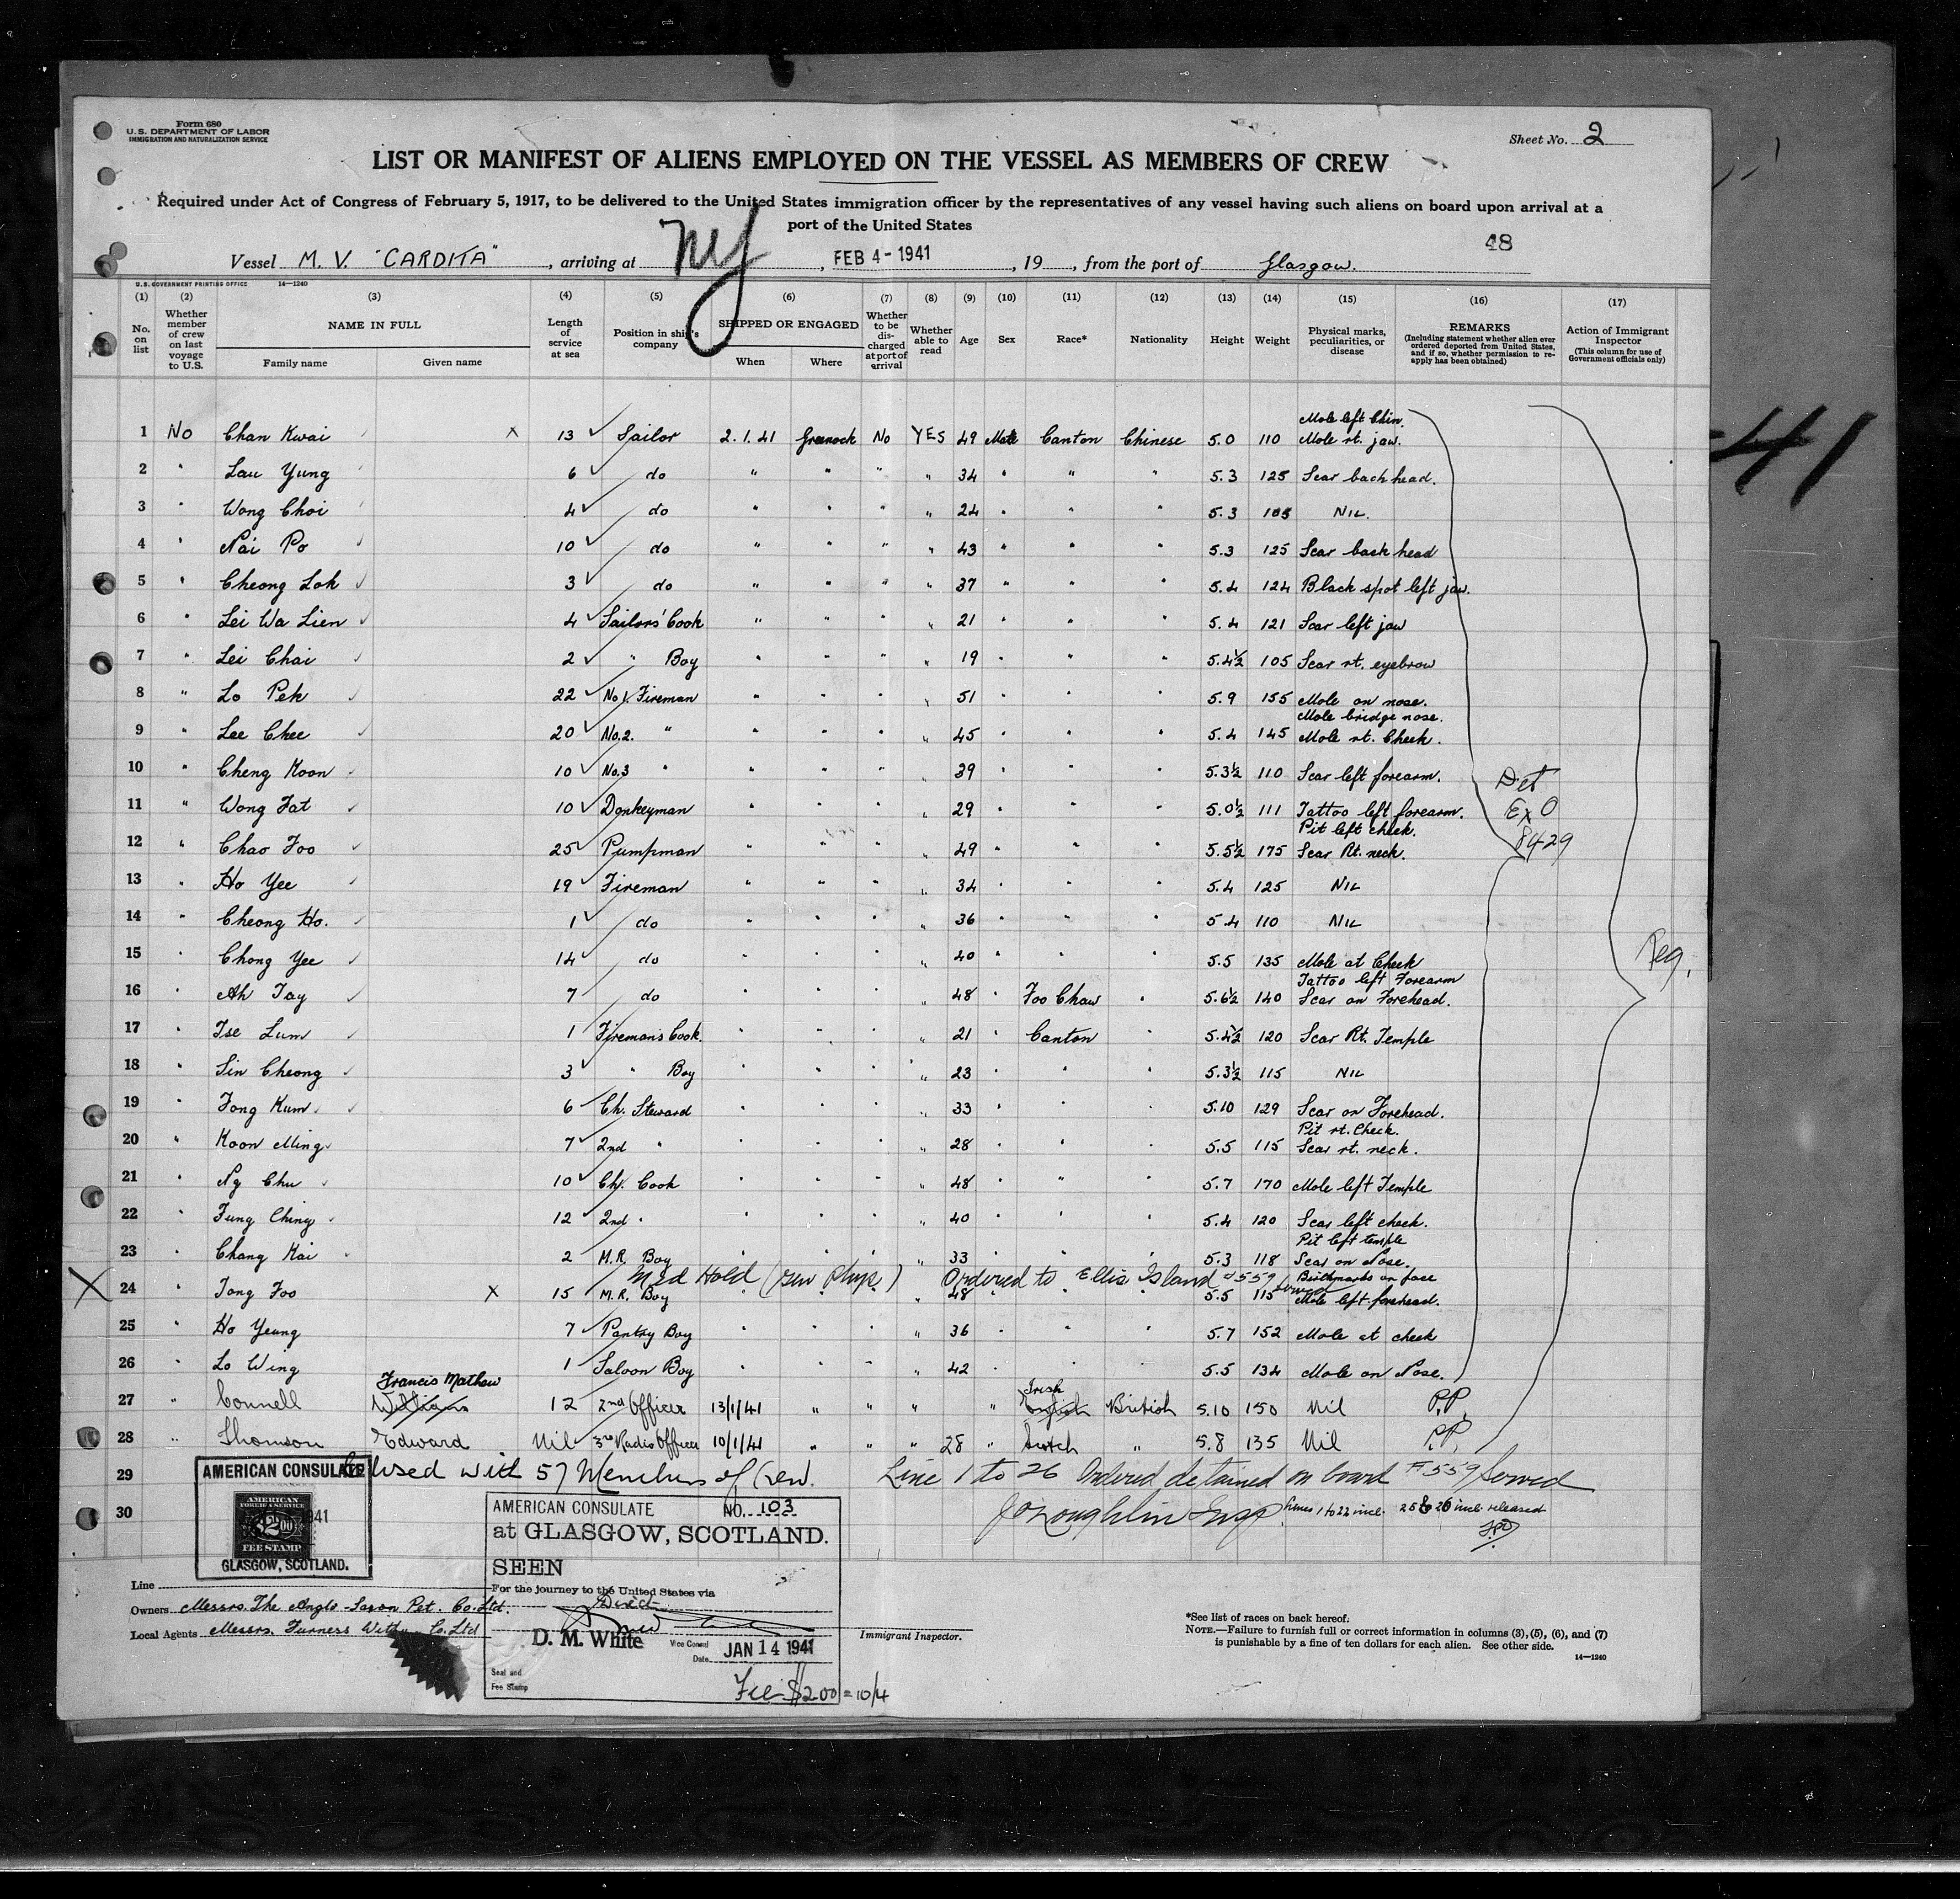 Form 680
U.S. DEPARTMENT OF LABOR
IMMIGRATION AND NATURALIZATION SERVICE
Sheet No. 2
LIST OR MANIFEST OF ALIENS EMPLOYED ON THE VESSEL AS MEMBERS OF CREW
Required under Act of Congress of February 5, 1917, to be delivered to the United States immigration officer by the representatives of any vessel having such aliens on board upon arrival at a
port of the United States
48
Vessel M.V. "CARDITA", arriving at NY, FEB 4 - 1941, 19, from the port of Glasgow.
U.S. GOVERNMENT PRINTING OFFICE 14—1240
(1) (2) (3) (4) (5) (6) (7) (8) (9) (10) (11) (12) (13) (14) (15) (16) (17)
No. on list
Whether member of crew on last voyage to U.S.
NAME IN FULL
Family name Given name
Length of service at sea
Position in ship's company
SHIPPED OR ENGAGED
When Where
Whether to be discharged at port of arrival
Whether able to read
Age Sex Race* Nationality Height Weight
Physical marks, peculiarities, or disease
REMARKS
(Including statement whether alien ever ordered deported from United States, and if so, whether permission to reapply has been obtained)
Action of Immigrant Inspector
(This column for use of Government officials only)
Mole left Chin.
1 No Chan Kwai x 13 Sailor 2.1.41 Greenock No YES 49 Male Canton Chinese 5.0 110 Mole rt. jaw.
2 " Lau Yung 6 do " " " " 34 " " " 5.3 125 Scar back head.
3 " Wong Choi 4 do " " " " 24 " " " 5.3 105 NIL.
4 " Nai Po 10 do " " " " 43 " " " 5.3 125 Scar back head
5 " Cheong Loh 3 do " " " " 37 " " " 5.4 124 Black spot left jaw.
6 " Lei Wa Lien 4 Sailors' Cook " " " " 21 " " " 5.4 121 Scar left jaw
7 " Lei Chai 2 " Boy " " " " 19 " " " 5.4½ 105 Scar rt. eyebrow
8 " Lo Pek 22 No 1. Fireman " " " " 51 " " " 5.9 155 Mole on nose.
Mole bridge nose.
9 " Lee Chee 20 No.2. " " " " " 45 " " " 5.4 145 Mole rt. Cheek.
10 " Cheng Koon 10 No.3 " " " " " 39 " " " 5.3½ 110 Scar left forearm.
Det
11 " Wong Fat 10 Donkeyman " " " " 29 " " " 5.0½ 111 Tattoo left forearm. Ex O
Pit left cheek.
12 " Chao Foo 25 Pumpman " " " " 49 " " " 5.5½ 175 Scar Rt. neck. 8429
13 " Ho Yee 19 Fireman " " " " 34 " " " 5.4 125 NIL
14 " Cheong Ho. 1 do " " " " 36 " " " 5.4 110 NIL
15 " Chong Yee 14 do " " " " 40 " " " 5.5 135 Mole at Cheek
Tattoo left Forearm
16 " Ah Tay 7 do " " " " 48 " Foo Chow " 5.6½ 140 Scar on Forehead.
17 " Tse Lum 1 Fireman's Cook. " " " " 21 " Canton " 5.4½ 120 Scar Rt. Temple
18 " Sin Cheong 3 " Boy " " " " 23 " " " 5.3½ 115 NIL
19 " Fong Kum 6 Ch. Steward " " " " 33 " " " 5.10 129 Scar on Forehead.
Pit rt. Cheek.
20 " Koon Ming 7 2nd " " " " " 28 " " " 5.5 115 Scar rt. neck.
21 " Ng Chu 10 Ch. Cook " " " " 48 " " " 5.7 170 Mole left Temple
22 " Fung Ching 12 2nd " " " " " 40 " " " 5.4 120 Scar left cheek.
Pit left temple
23 " Chang Kai 2 M.R. Boy " " " " 33 " " " 5.3 118 Scar on Nose.
Med Hold Ordered to Ellis Island 559 served Birthmarks on face
24 " Tong Foo x 15 M.R. Boy " " " " 48 " " " 5.5 115 Mole left forehead.
25 " Ho Yeung 7 Pantry Boy " " " " 36 " " " 5.7 152 Mole at cheek
26 " Lo Wing 1 Saloon Boy " " " " 42 " " " 5.5 134 Mole on Nose.
Francis Mathew Irish
27 " Connell William 12 2nd Officer 13/1/41 " " " " English British 5.10 150 Nil P.P.
28 " Thomson Edward Nil 3rd Radio Officer 10/1/41 " " " 28 " Scotch " 5.8 135 Nil P.P.
Reg.
41
29 Closed with 57 Members of Crew. Line 1 to 26 Ordered detained on board F 559 served
30 J O'Loughlin Insp. Lines 1 to 22 incl. 25 & 26 incl. released
AMERICAN CONSULATE
AMERICAN
FOREIGN SERVICE
$2.00
FEE STAMP
1941
GLASGOW, SCOTLAND.
AMERICAN CONSULATE NO. 103
at GLASGOW, SCOTLAND.
SEEN
For the journey to the United States via
Direct
D. M. White Vice Consul
Date JAN 14 1941
Seal and
Fee Stamp
Fee $2.00 = 10/4
Line
Owners Messrs. The Anglo-Saxon Pet. Co. Ltd.
Local Agents Messrs. Furness Withy Co. Ltd
Immigrant Inspector.
*See list of races on back hereof.
NOTE.—Failure to furnish full or correct information in columns (3), (5), (6), and (7)
is punishable by a fine of ten dollars for each alien. See other side.
14—1240